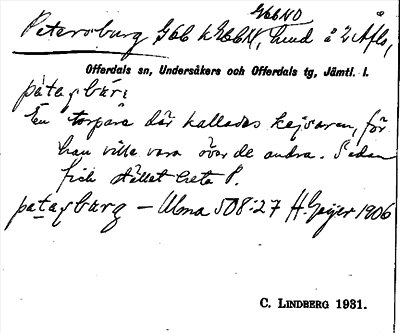 GobNO
Petersburg Gob k GobN, lund å 2 Åflo,
Offerdals sn, Undersåkers och Offerdals tg, Jämtl. l.
pàtaşbúrı
En torpare där kallades kejsaren, för
han ville vara över de andra. Sedan
fick stället heta P.
pataşbúrg – Ulma 508:27 H. Geijer 1906
C. LINDBERG 1931.